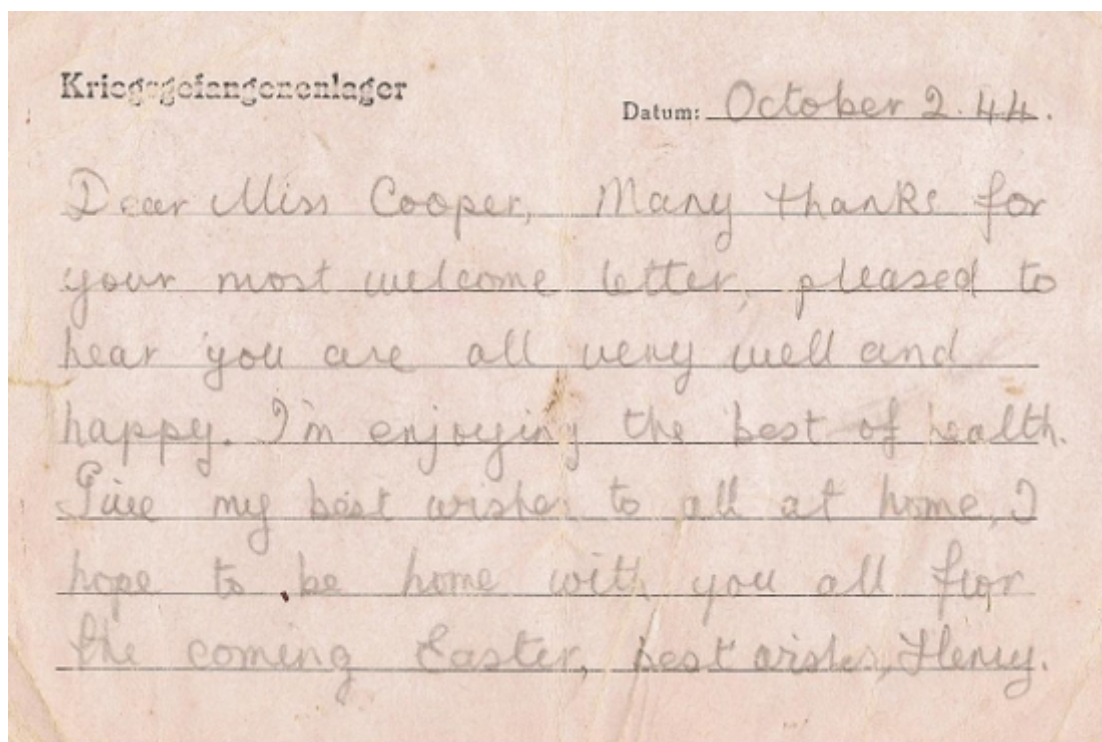 Kriegsgefangenenlager
Datum: October 2. 44.
Dear Miss Cooper, Many thanks for
your most welcome letter, pleased to
hear you are all very well and
happy. I'm enjoying the best of health.
Give my best wishes to all at home, I
hope to be home with you all for
the coming Easter, best wishes, Henry.